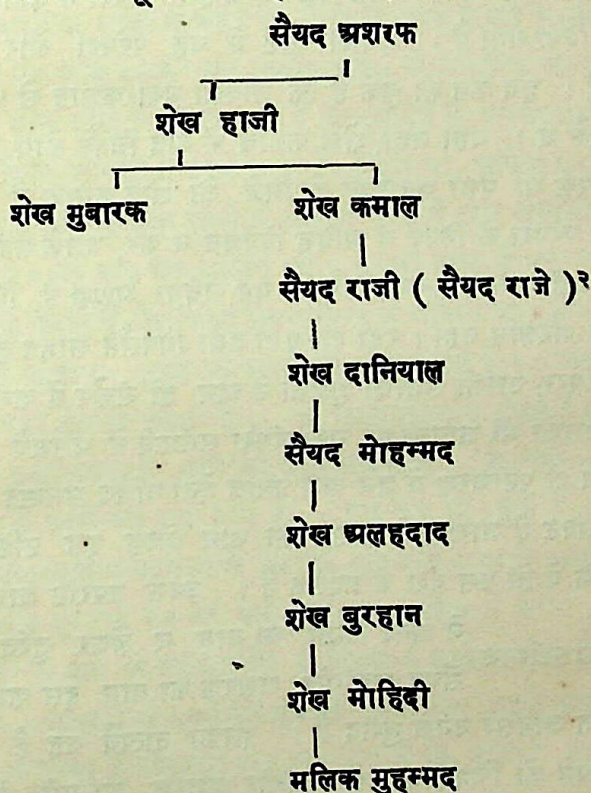 सैयद अशरफ
शेख हाजी
शेख मुबारक शेख कमाल
सैयद राजी ( सैयद राजे )२
शेख दानियाल
सैयद मोहम्मद
शेख अलहदाद
शेख बुरहान
शेख मोहिदी
मलिक मुहम्मद